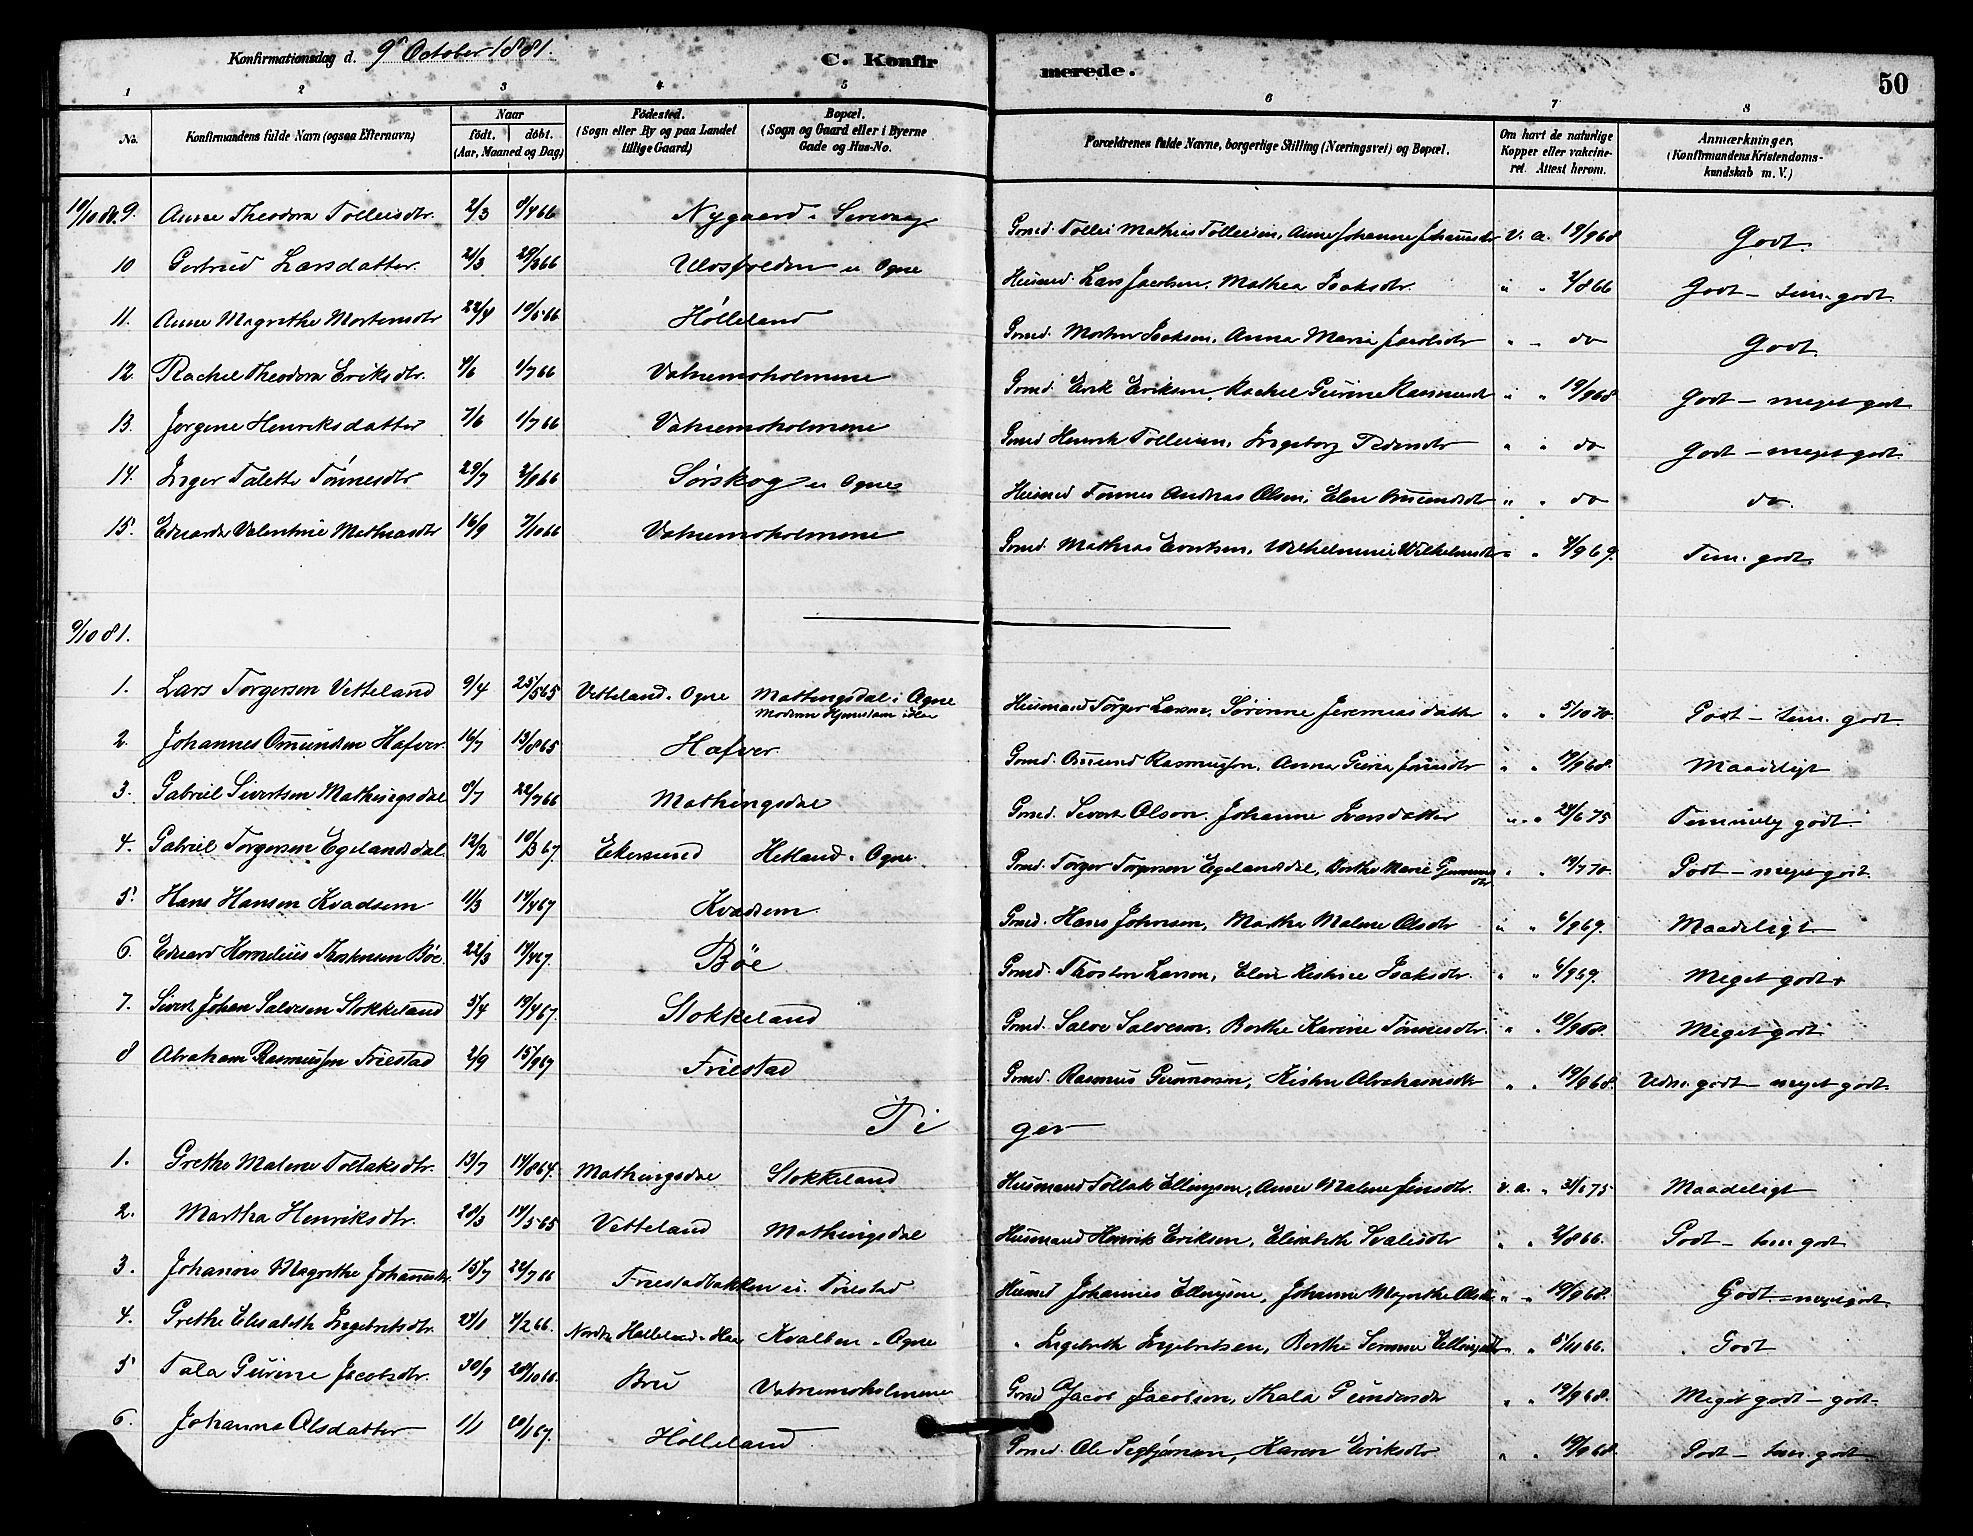 Konfirmationsdag d. 9de October 1881.
C. Konfirmerede.
50
1 2 3 4 5 6 7 8
No. Konfirmandens fulde Navn (ogsaa Efternavn) Naar født. døbt. (Aar, Maaned og Dag) Fødested. (Sogn eller By og paa Landet tillige Gaard) Bopæl. (Sogn og Gaard eller i Byerne Gade og Hus-No. Forældrenes fulde Navne, borgerlige Stilling (Næringsvei) og Bopæl. Om havt de naturlige Kopper eller vakcineret. Attest herom. Anmærkninger. (Konfirmandens Kristendomskundskab m. V.)
9. Anne Theodora Tolleisdtr. 2/3 8/4 66 Nygaard i Sirevaag Gmd. Tollei Mathias Tolleisen, Anne Johanne Johannesdtr v. a. 19/9 68 Godt.
10 Gertrud Larsdatter. 21/3 29/3 66 Ulvsfolden u Ogne Husmd. Lars Jacobsen, Mathea Isaksdtr. " " 2/8 66 Godt – tem. godt
11. Anne Magrethe Mortensdtr 22/4 10/5 66 Hølleland Gmd. Morten Isaksen, Anna Maria Jacobsdtr " " do Godt
12. Rachel Theodora Eriksdtr. 4/6 1/7 66 Vatnemoholmene Gmd. Erik Eriksen, Rachel Gurine Rasmusdt " " 19/9 68 Godt – meget godt
13. Jørgine Henriksdatter 7/6 1/7 66 Vatnemoholmene Gmd Henrik Tolleisen, Ingeborg Pedersdtr " " do Godt – meget godt
14. Inger Talette Tønnesdtr 29/7 2/9 66 Sørskog u Ogne Husmd Tønnes Andreas Olsen, Elen Omundsdtr " " do do.
15. Edvarda Valentine Mathiasdtr 16/9 7/10 66 Vatnemoholmene Gmd. Mathias Evertsen, Wilhelmine Wilhelmsdtr " " 4/9 69. Tem. godt.
9/10 81.
1. Lars Torgersen Vetteland 9/4 25/5 65 Vetteland. Ogne Mathingsdal i Ogne Husmand Torger Larsen, Sørinne Jeremiasdatter " " 5/10 70. Godt – tem. godt
2. Johannes Omundsen Hafver. 16/7 13/8 65 Hafver Gmd. Omund Rasmussen, Anna Guria Jonasdtr " " 19/9 68. Maadeligt
3. Gabriel Sivertsen Mathingsdal 8/7 22/7 66 Mathingsdal Gmd. Sivert Olson. Johanne Iversdatter " " 24/6 75 Temmelig godt.
4. Gabriel Torgersen Egelandsdal. 12/2 10/3 67 Ekersund Hetland. Ogne. Gmd. Torger Torgersen Egelandsdal, Berthe Marie Gunmundsdtr " " 19/7 70. Godt – meget godt.
5. Hans Hansen Kvadsem 11/3 14/4 67 Kvadsem Gmd. Hans Johnsen, Martha Malene Olsdtr " " 6/9 69. Maadeligt
6. Edvard Kornelius Thorstensen Bøe. 22/3 14/4 67. Bøe Gmd. Thosten Larsen, Elen Kistine Isaksdtr. " " 6/9 69. Meget godt.
7. Sivert Johan Salvesen Stokkeland 5/4 19/4 67. Stokkeland Gmd. Salve Salveson, Berthe Karine Tønnesdtr. " " 19/9 68. Meget godt
8 Abraham Rasmussen Friestad 2/9 15/9 67 Friestad Gmd. Rasmus Gunnarsen, Kisten Abrahamsdtr " " 19/9 68. Vedm. godt – meget godt
Piger
1. Grethe Malene Tollaksdtr. 13/7 14/8 64. Mathingsdal Stokkeland Husmand Tollak Ellingsen, Anne Malene Jensdtr. v. a. " 21/6 75 Maadeligt
2. Martha Henriksdtr. 20/3 14/5 65 Vetteland Mathingsdal Husmand Henrik Eriksen, Elisabeth Svalesdtr " " 2/8 66. Godt – tem. godt
3. Johanne Magrethe Johannesdtr 15/7 22/7 66 Friestadbakken u. Friestad Husmd Johannes Ellingsen, Johanne Magrethe Olsdtr " " 19/9 68. Godt – meget godt
4. Grethe Elisabeth Ingebretsdtr. 24/1 4/2 66. Nordre Hølleland. Haa Kvalben. Ogne " Ingebreth Ingebretsen, Berthe Serinne Ellingsdtr " " 5/11 66. Godt
5 Tala Gurine Jacobsdtr. 30/9 28/10 66 Bru Vatnemoholmene Gmd Jacob Jacobsen, Thala Gundersdtr " " 19/9 68. Meget godt – godt
6. Johanne Olsdatter 1/1 20/1 67. Hølleland Gmd. Ole Segbjørnsen, Karen Eriksdtr. " " 19/9 68. Godt – tem. godt